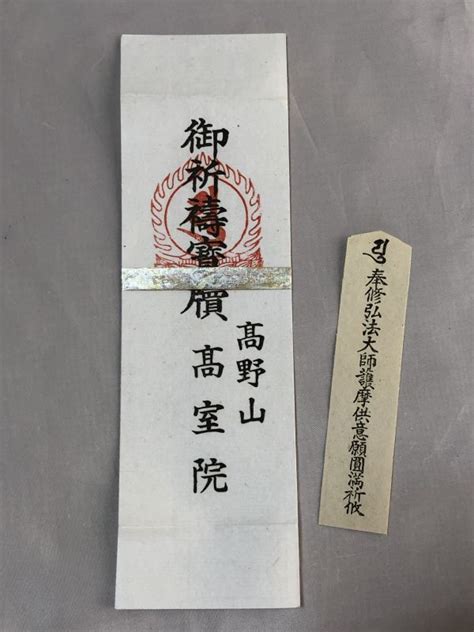 御祈禱寶牘
髙野山
髙室院
奉修弘法大師護摩供意願圓満祈攸